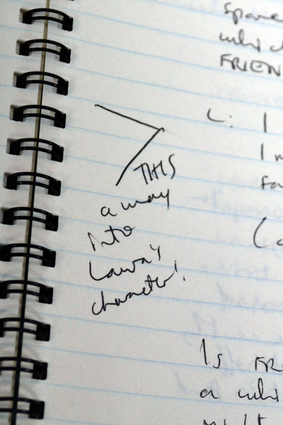 spare
which
FRIEN
L: I
THIS
a way
into
Laura's
character!
Is FR
a whi